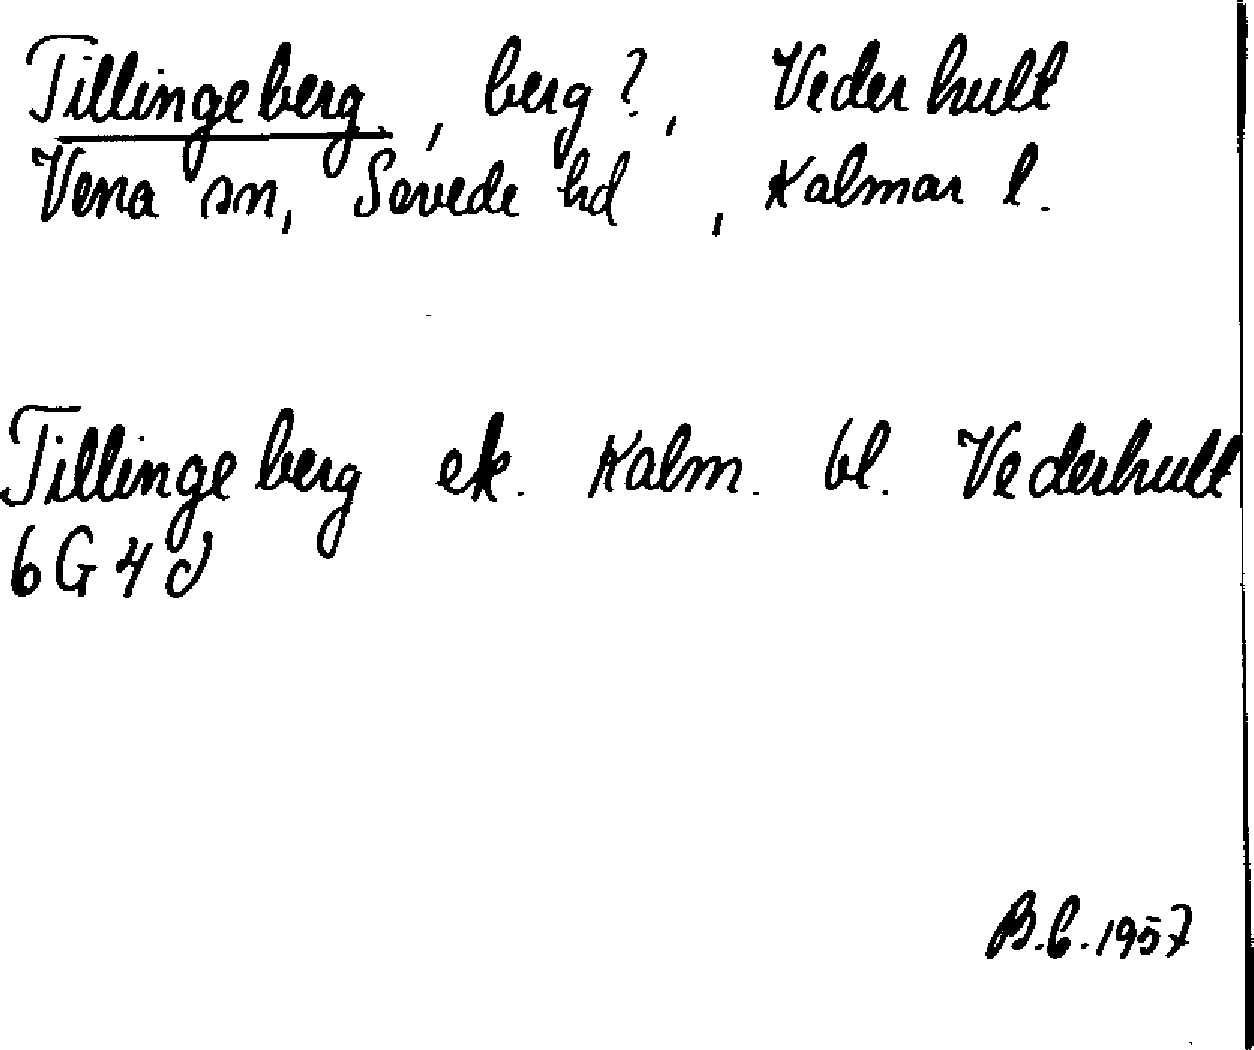 Tillingeberg, berg?, Vederhult
Vena sn, Sevede hd, Kalmar l.
Tillingeberg ek. Kalm. bl. Vederhult
6G4d
B.G.1957